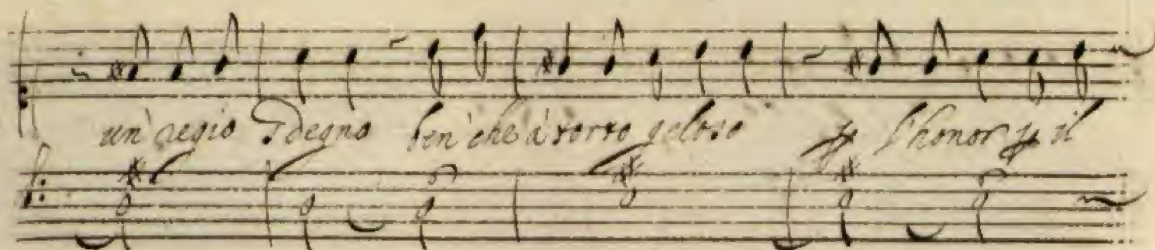 un' regio sdegno ben' che à torto geloso ꝑ l'honor ꝑ il